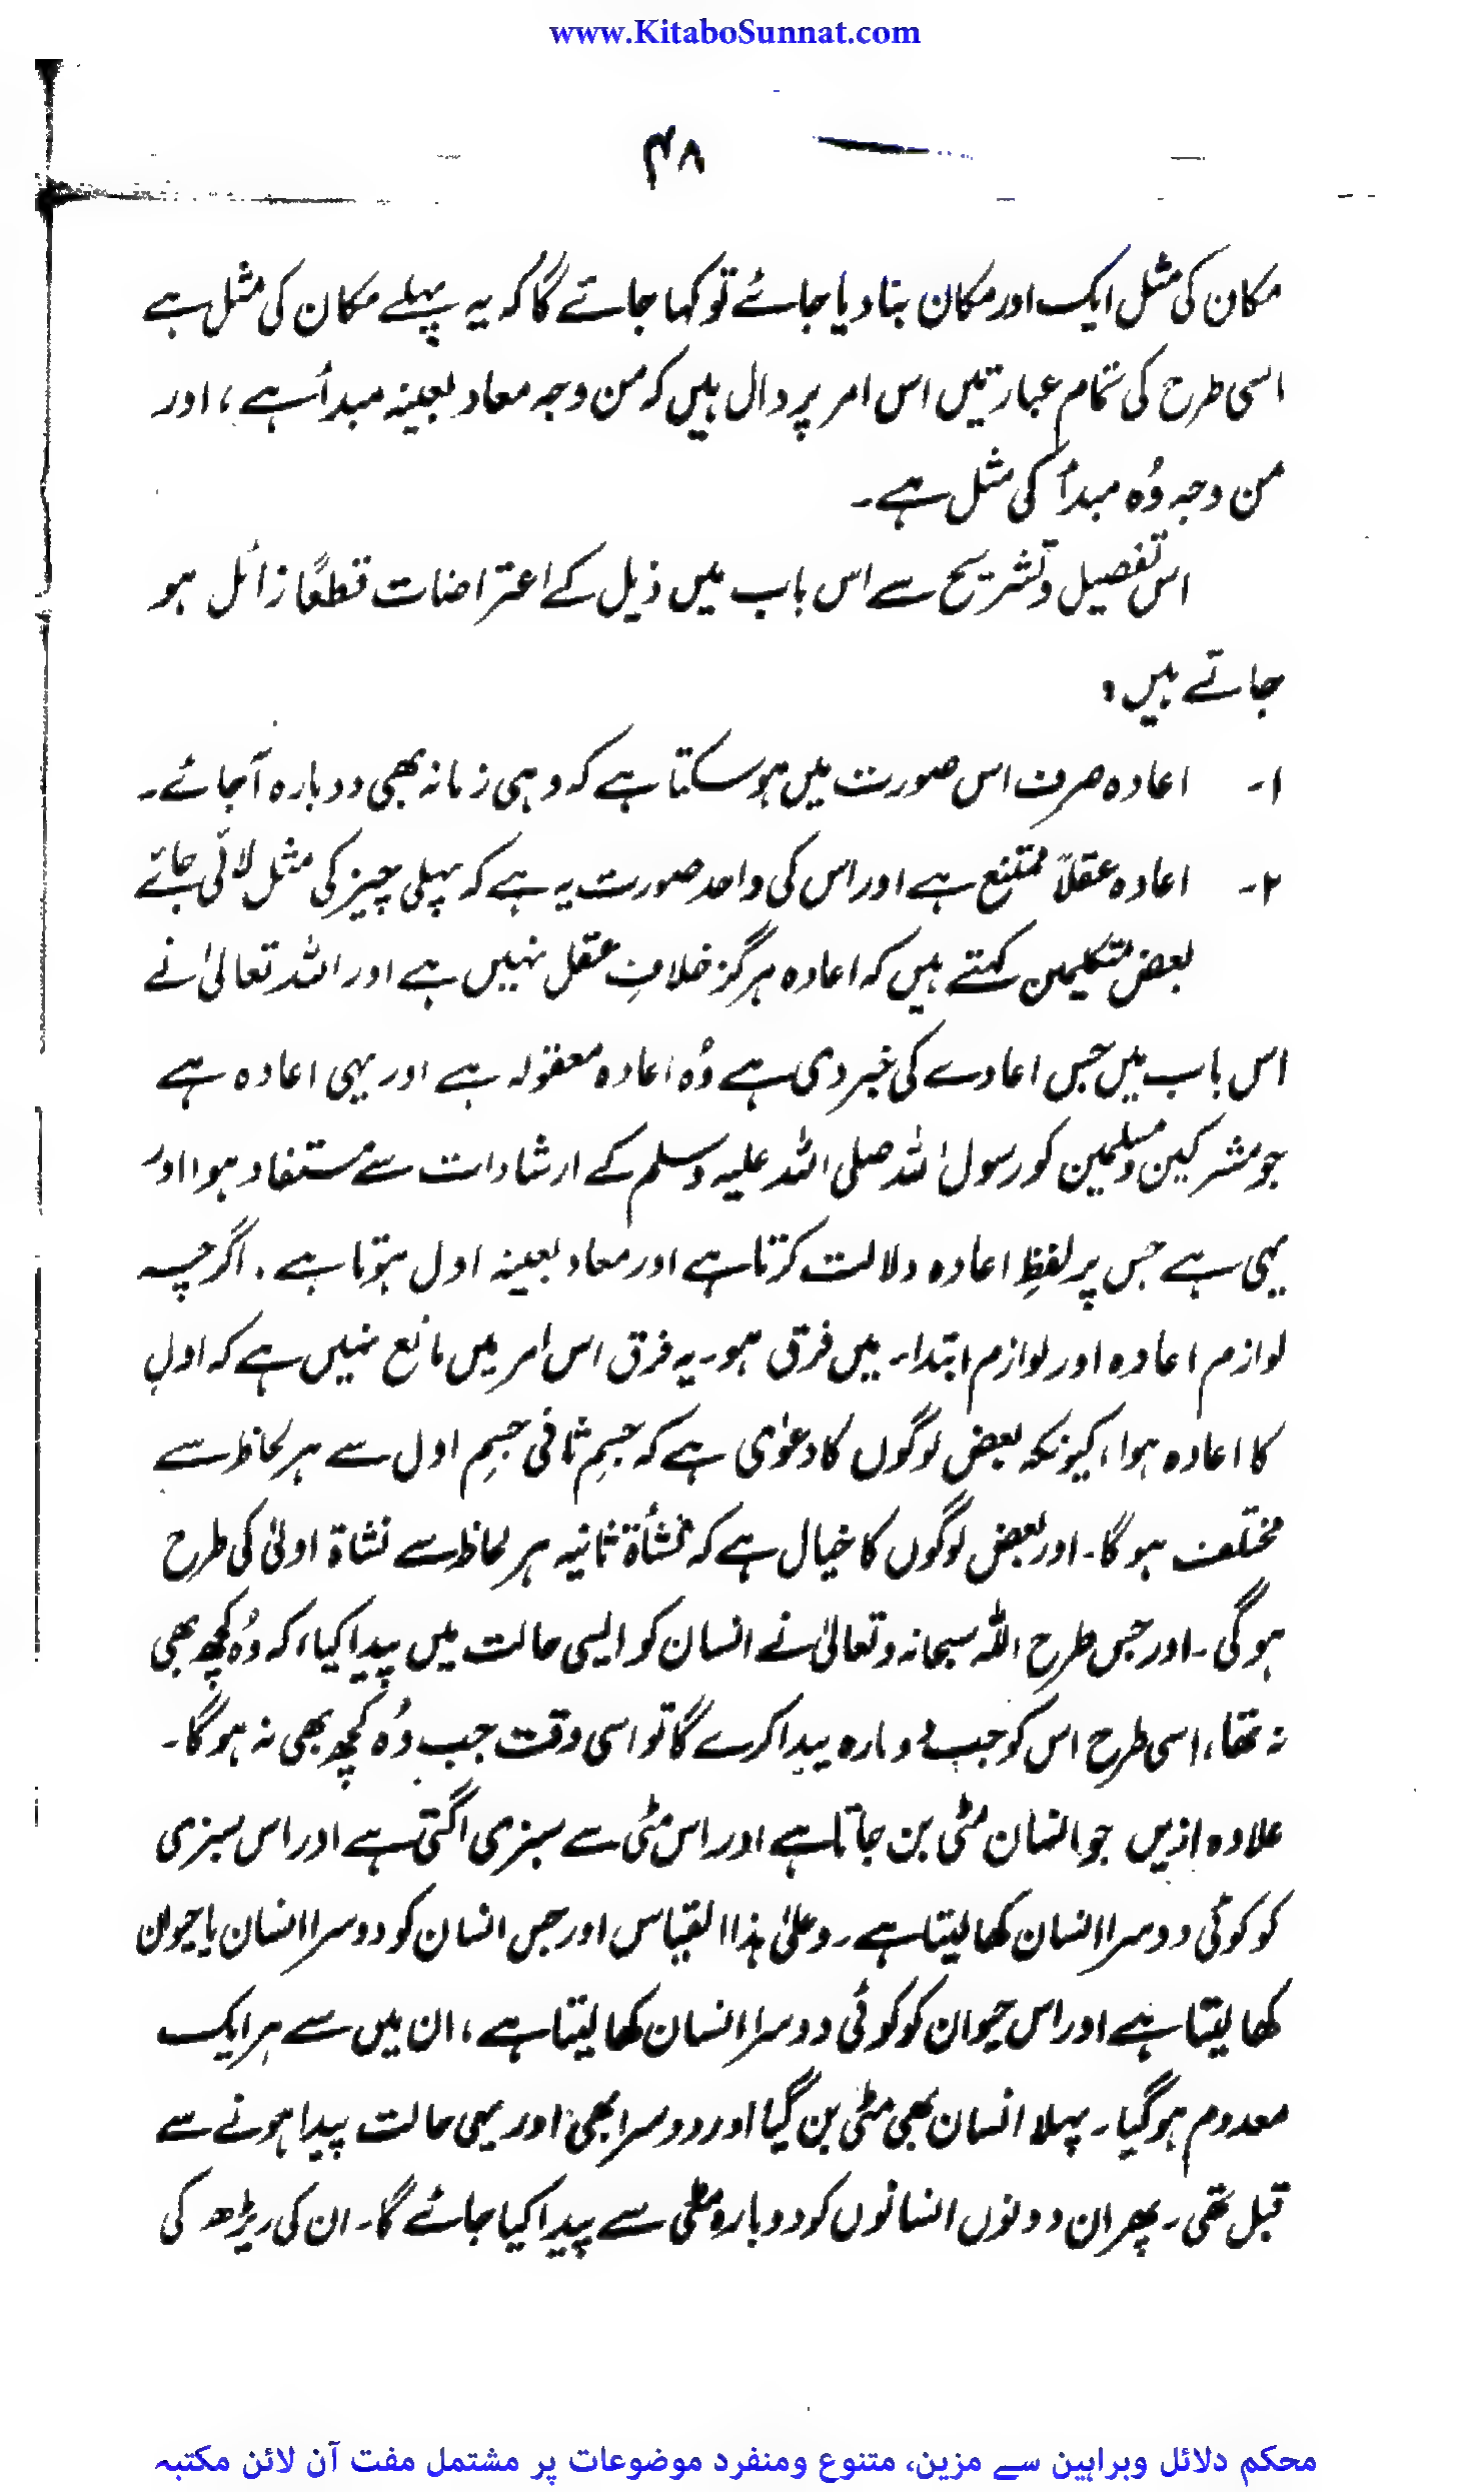 www.KitaboSunnat.com
۴۸
مکان کی مثل ایک اور مکان بنا دیا جائے تو کہا جائے گا کہ یہ پہلے مکان کی مثل ہے
اسی طرح کی تمام عبارتیں اس امر پر دال ہیں کہ من وجہ معاد بعینہٖ مبدأ ہے، اور
من وجہ وُہ مبدأ کی مثل ہے۔
اس تفصیل و تشریح سے اس باب میں ذیل کے اعتراضات قطعًا زائل ہو
جاتے ہیں :
۱۔ اعادہ صرف اس صورت میں ہو سکتا ہے کہ وہی زمانہ بھی دوبارہ آجائے۔
۲۔ اعادہ عقلاً ممتنع ہے اور اس کی واحد صورت یہ ہے کہ پہلی چیز کی مثل لائی جائے
بعض متکلمین کہتے ہیں کہ اعادہ ہرگز خلافِ عقل نہیں ہے اور اللہ تعالیٰ نے
اس باب میں جس اعادے کی خبر دی ہے وُہ اعادہ معقولہ ہے اور یہی اعادہ ہے
جو مشرکین و مسلمین کو رسول اللہ صلی اللہ علیہ وسلم کے ارشادات سے مستفاد ہوا اور
یہی ہے جس پر لفظِ اعادہ دلالت کرتا ہے اور معاد بعینہٖ اول ہوتا ہے۔ اگرچہ
لوازم اعادہ اور لوازم ابتداء میں فرق ہو۔ یہ فرق اس امر میں مانع نہیں ہے کہ اول
کا اعادہ ہوا، کیونکہ بعض لوگوں کا دعوٰی ہے کہ جسمِ ثانی جسمِ اول سے ہر لحاظ سے
مختلف ہوگا۔ اور بعض لوگوں کا خیال ہے کہ نشأۃ ثانیہ ہر لحاظ سے نشاۃ اولیٰ کی طرح
ہوگی۔ اور جس طرح اللہ سبحانہ وتعالیٰ نے انسان کو ایسی حالت میں پیدا کیا، کہ وُہ کچھ بھی
نہ تھا، اسی طرح اس کو جب دوبارہ پیدا کرے گا تو اسی وقت جب وُہ کچھ بھی نہ ہوگا۔
علاوہ ازیں جو انسان مٹی بن جاتا ہے اور اس مٹی سے سبزی اگتی ہے اور اس سبزی
کو کوئی دوسرا انسان کھا لیتا ہے۔ وعلیٰ ہذا القیاس اور جس انسان کو دوسرا انسان یا حیوان
کھا لیتا ہے اور اس حیوان کو کوئی دوسرا انسان کھا لیتا ہے، ان میں سے ہر ایک
معدوم ہوگیا۔ پہلا انسان بھی مٹی بن گیا اور دوسرا بھی اور یہی حالت پیدا ہونے سے
قبل تھی۔ پھر ان دونوں انسانوں کو دوبارہ مٹی سے پیدا کیا جائے گا۔ ان کی ریڑھ کی
محکم دلائل وبراہین سے مزین، متنوع ومنفرد موضوعات پر مشتمل مفت آن لائن مکتبہ